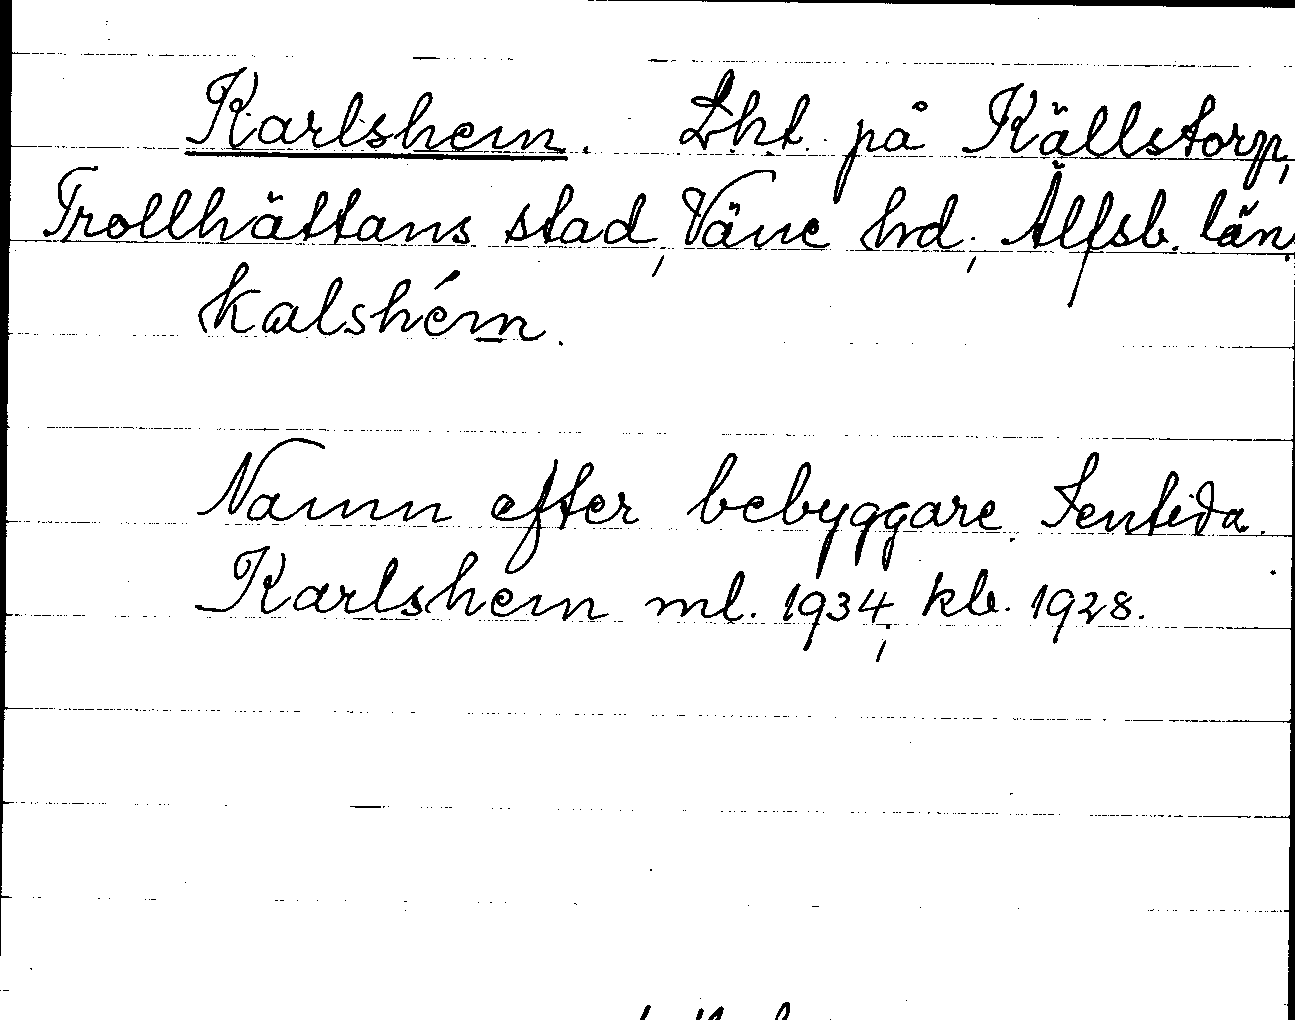 Karlshem. Lht. på Källstorp,
Trollhättans stad, Väne hd, Älfsb. län.
kalshém.
Namn efter bebyggare. Sentida.
Karlshem ml. 1934, kb. 1928.